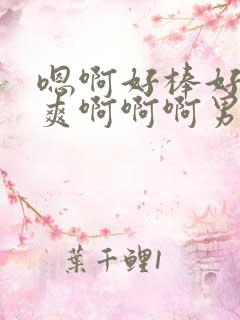 嗯啊好棒好
爽啊啊啊男
葉千鲤1